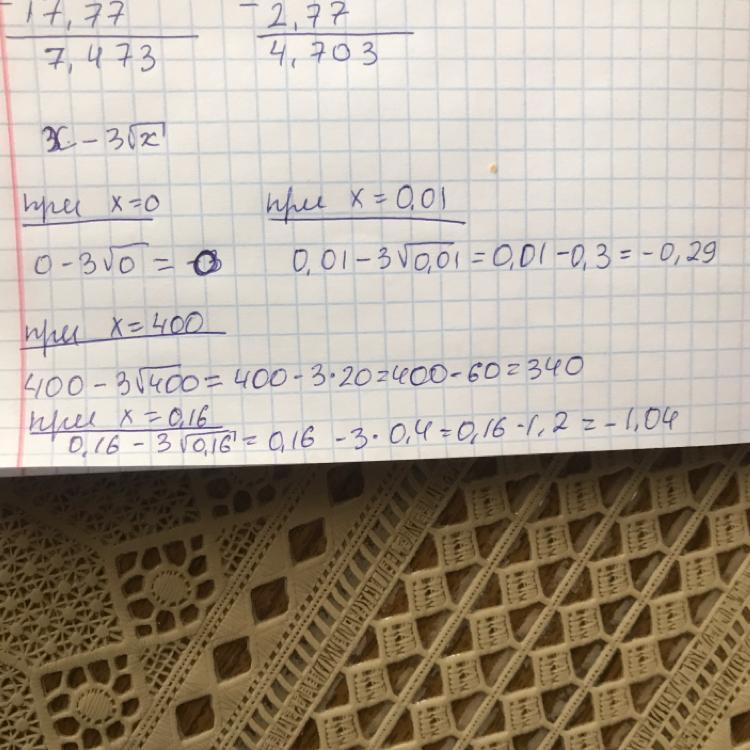 - 17,77 - 2,77
7,473 4,703
x - 3√x
при x=0 при x = 0,01
0 - 3√0 = 0 0,01 - 3√0,01 = 0,01 - 0,3 = - 0,29
при x = 400
400 - 3√400 = 400 - 3·20 = 400 - 60 = 340
при x = 0,16
0,16 - 3√0,16 = 0,16 - 3·0,4 = 0,16 - 1,2 = - 1,04